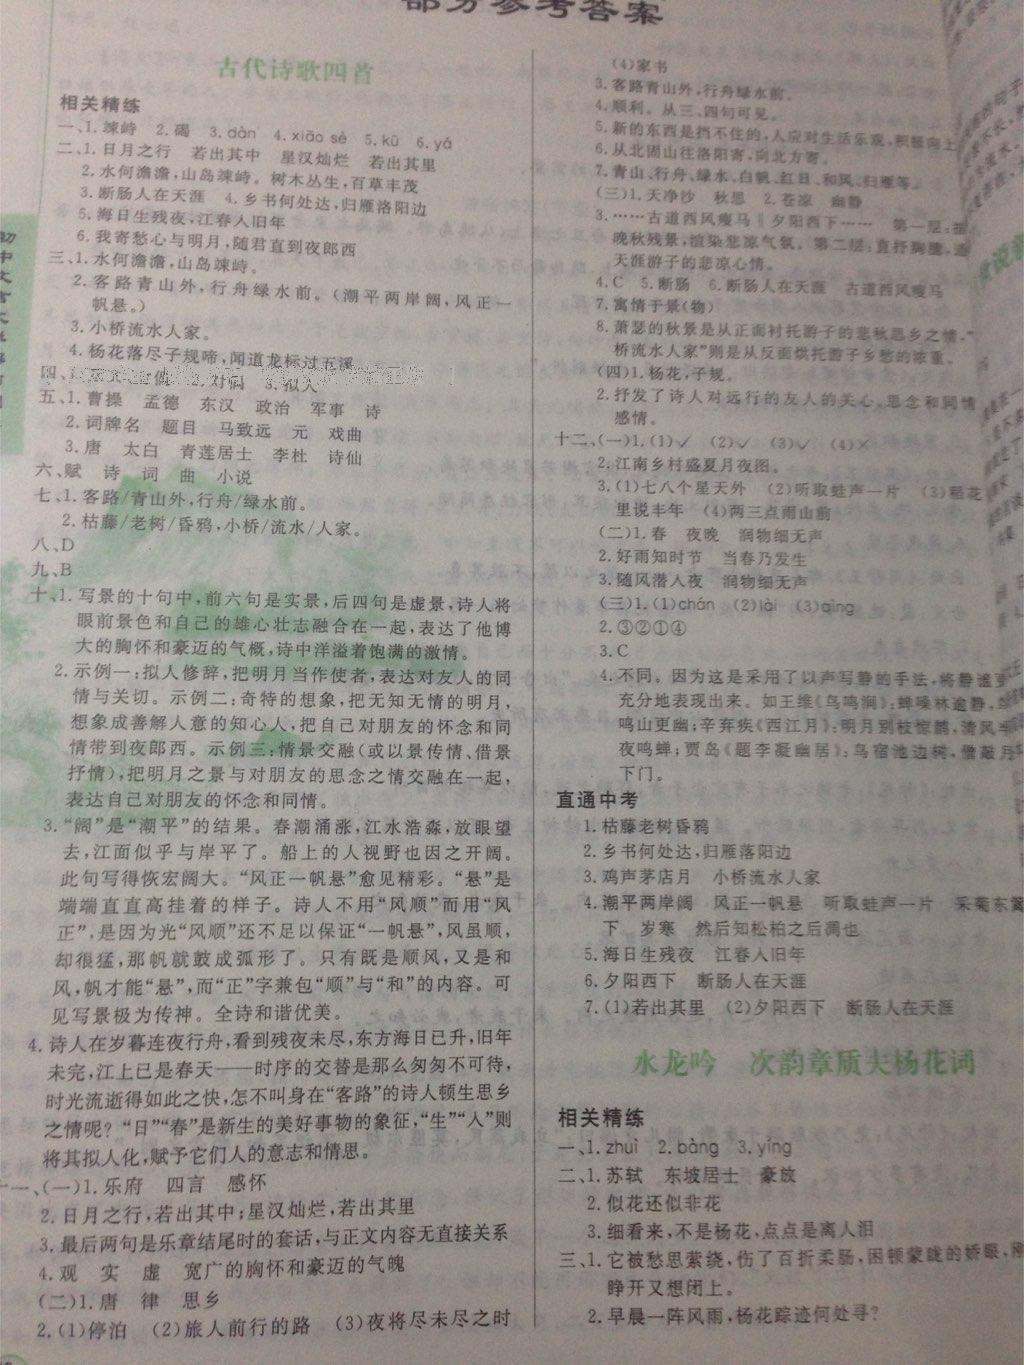 部分参考答案
古代诗歌四首
相关精练
一、1.竦峙 2.碣 3.dàn 4.xiāo sè 5.kū 6.yá
二、1.日月之行 若出其中 星汉灿烂 若出其里
2.水何澹澹,山岛竦峙。树木丛生,百草丰茂
3.断肠人在天涯 4.乡书何处达,归雁洛阳边
5.海日生残夜,江春入旧年
6.我寄愁心与明月,随君直到夜郎西
三、1.水何澹澹,山岛竦峙。
2.客路青山外,行舟绿水前。(潮平两岸阔,风正一
帆悬。)
3.小桥流水人家。
4.杨花落尽子规啼,闻道龙标过五溪
四、 2.对偶 3.拟人
五、1.曹操 孟德 东汉 政治 军事 诗
2.词牌名 题目 马致远 元 戏曲
3.唐 太白 青莲居士 李杜 诗仙
六、赋 诗 词 曲 小说
七、1.客路/青山外,行舟/绿水前。
2.枯藤/老树/昏鸦,小桥/流水/人家。
八、D
九、B
十、1.写景的十句中,前六句是实景,后四句是虚景,诗人将
眼前景色和自己的雄心壮志融合在一起,表达了他博
大的胸怀和豪迈的气概,诗中洋溢着饱满的激情。
2.示例一:拟人修辞,把明月当作使者,表达对友人的同
情与关切。示例二:奇特的想象,把无知无情的明月,
想象成善解人意的知心人,把自己对朋友的怀念和同
情带到夜郎西。示例三:情景交融(或以景传情、借景
抒情),把明月之景与对朋友的思念之情交融在一起,
表达自己对朋友的怀念和同情。
3.“阔”是“潮平”的结果。春潮涌涨,江水浩淼,放眼望
去,江面似乎与岸平了。船上的人视野也因之开阔。
此句写得恢宏阔大。“风正一帆悬”愈见精彩。“悬”是
端端直直高挂着的样子。诗人不用“风顺”而用“风
正”,是因为光“风顺”还不足以保证“一帆悬”,风虽顺,
却很猛,那帆就鼓成弧形了。只有既是顺风,又是和
风,帆才能“悬”,而“正”字兼包“顺”与“和”的内容。可
见写景极为传神。全诗和谐优美。
4.诗人在岁暮连夜行舟,看到残夜未尽,东方海日已升,旧年
未完,江上已是春天——时序的交替是那么匆匆不可待,
时光流逝得如此之快,怎不叫身在“客路”的诗人顿生思乡
之情呢?“日”“春”是新生的美好事物的象征,“生”“人”则
将其拟人化,赋予它们人的意志和情思。
十一、(一)1.乐府 四言 感怀
2.日月之行,若出其中;星汉灿烂,若出其里
3.最后两句是乐章结尾时的套话,与正文内容无直接关系
4.观 实 虚 宽广的胸怀和豪迈的气魄
(二)1.唐 律 思乡
2.(1)停泊 (2)旅人前行的路 (3)夜将尽未尽之时
(4)家书
3.客路青山外,行舟绿水前。
4.顺利。从三、四句可见。
5.新的东西是挡不住的,人应对生活乐观,积极向上
6.从北固山往洛阳寄,向北方寄。
7.青山、行舟、绿水、白帆、红日、和风、归雁等。
(三)1.天净沙 秋思 2.苍凉 幽静
3.……古道西风瘦马‖夕阳西下…… 第一层:描
晚秋残景,渲染悲凉气氛。第二层:直抒胸臆,
天涯游子的悲凉心情。
4.C 5.断肠 6.断肠人在天涯 古道西风瘦马
7.寓情于景(物)
8.萧瑟的秋景是从正面衬托游子的悲秋思乡之情,“
桥流水人家”则是从反面烘托游子乡愁的浓重。
(四)1.杨花,子规。
2.抒发了诗人对远行的友人的关心、思念和同情
感情。
十二、(一)1.(1)✓ (2)✓ (3)✓ (4)×
2.江南乡村盛夏月夜图。
3.(1)七八个星天外 (2)听取蛙声一片 (3)稻花
里说丰年 (4)两三点雨山前
(二)1.春 夜晚 润物细无声
2.好雨知时节 当春乃发生
3.随风潜入夜 润物细无声
(三)1.(1)chán (2)lài (3)qìng
2.③②①④
3.C
4.不同。因为这是采用了以声写静的手法,将静谧更
充分地表现出来。如王维《鸟鸣涧》:蝉噪林逾静,鸟
鸣山更幽;辛弃疾《西江月》:明月别枝惊鹊,清风半
夜鸣蝉;贾岛《题李凝幽居》:鸟宿池边树,僧敲月
下门。
直通中考
1.枯藤老树昏鸦
2.乡书何处达,归雁落阳边
3.鸡声茅店月 小桥流水人家
4.潮平两岸阔 风正一帆悬 听取蛙声一片 采菊东篱
下 岁寒 然后知松柏之后凋也
5.海日生残夜 江春入旧年
6.夕阳西下 断肠人在天涯
7.(1)若出其里 (2)夕阳西下 断肠人在天涯
水龙吟 次韵章质夫杨花词
相关精练
一、1.zhuì 2.bàng 3.yíng
二、1.苏轼 东坡居士 豪放
2.似花还似非花
3.细看来,不是杨花,点点是离人泪
三、1.它被愁思萦绕,伤了百折柔肠,困顿蒙眬的娇眼,刚
睁开又想闭上。
2.早晨一阵风雨,杨花踪迹何处寻?